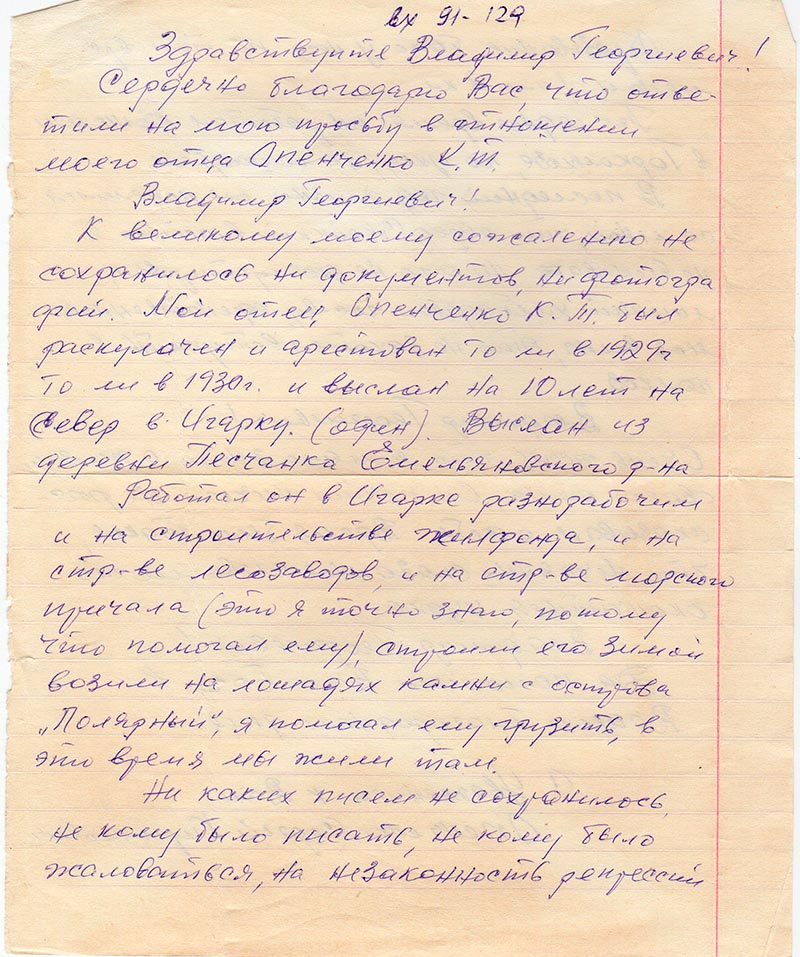 вх 91-129
Здравствуйте Владимир Георгиевич!
Сердечно благодарю Вас, что отве-
тили на мою просьбу в отношении
моего отца Опенченко К.Т.
Владимир Георгиевич!
К великому моему сожалению не
сохранилось ни документов, ни фотогра
фий. Мой отец, Опенченко К.Т. был
раскулачен и арестован то ли в 1929г
то ли в 1930г. и выслан на 10 лет на
Север в Игарку. (один). Выслан из
деревни Песчанка Емельяновского р-на
Работал он в Игарке разнорабочим
и на строительстве жилфонда, и на
стр-ве лесозаводов, и на стр-ве морского
причала (это я точно знаю, потому
что помогал ему), строили его зимой
возили на лошадях камни с острова
„Полярный", я помогал ему грузить, в
это время мы жили там.
Ни каких писем не сохранилось,
не кому было писать, не кому было
жаловаться, на незаконность репрессий